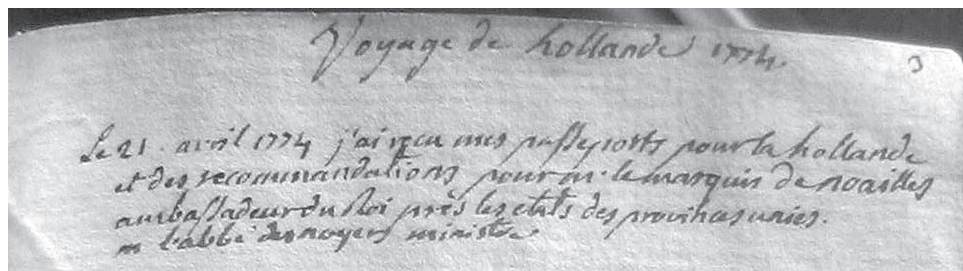 Voyage de hollande 1774.
3
Le 21 avril 1774 j'ai reçu mes passeports pour la hollande
et des recommandations pour mr. le marquis de noailles
ambassadeur du Roi près les etats des provinces unies.
m l'abbé desnoyers ministre.